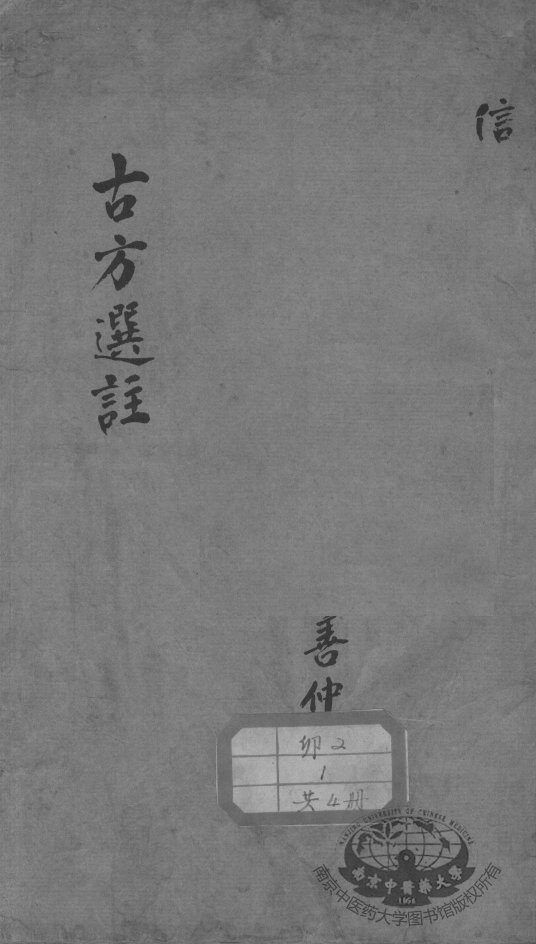 信
古方選註
善仲
卯2
1
共4册
NANJING UNIVERSITY OF CHINESE MEDICINE
南京中醫藥大學
1954
南京中医药大学图书馆版权所有